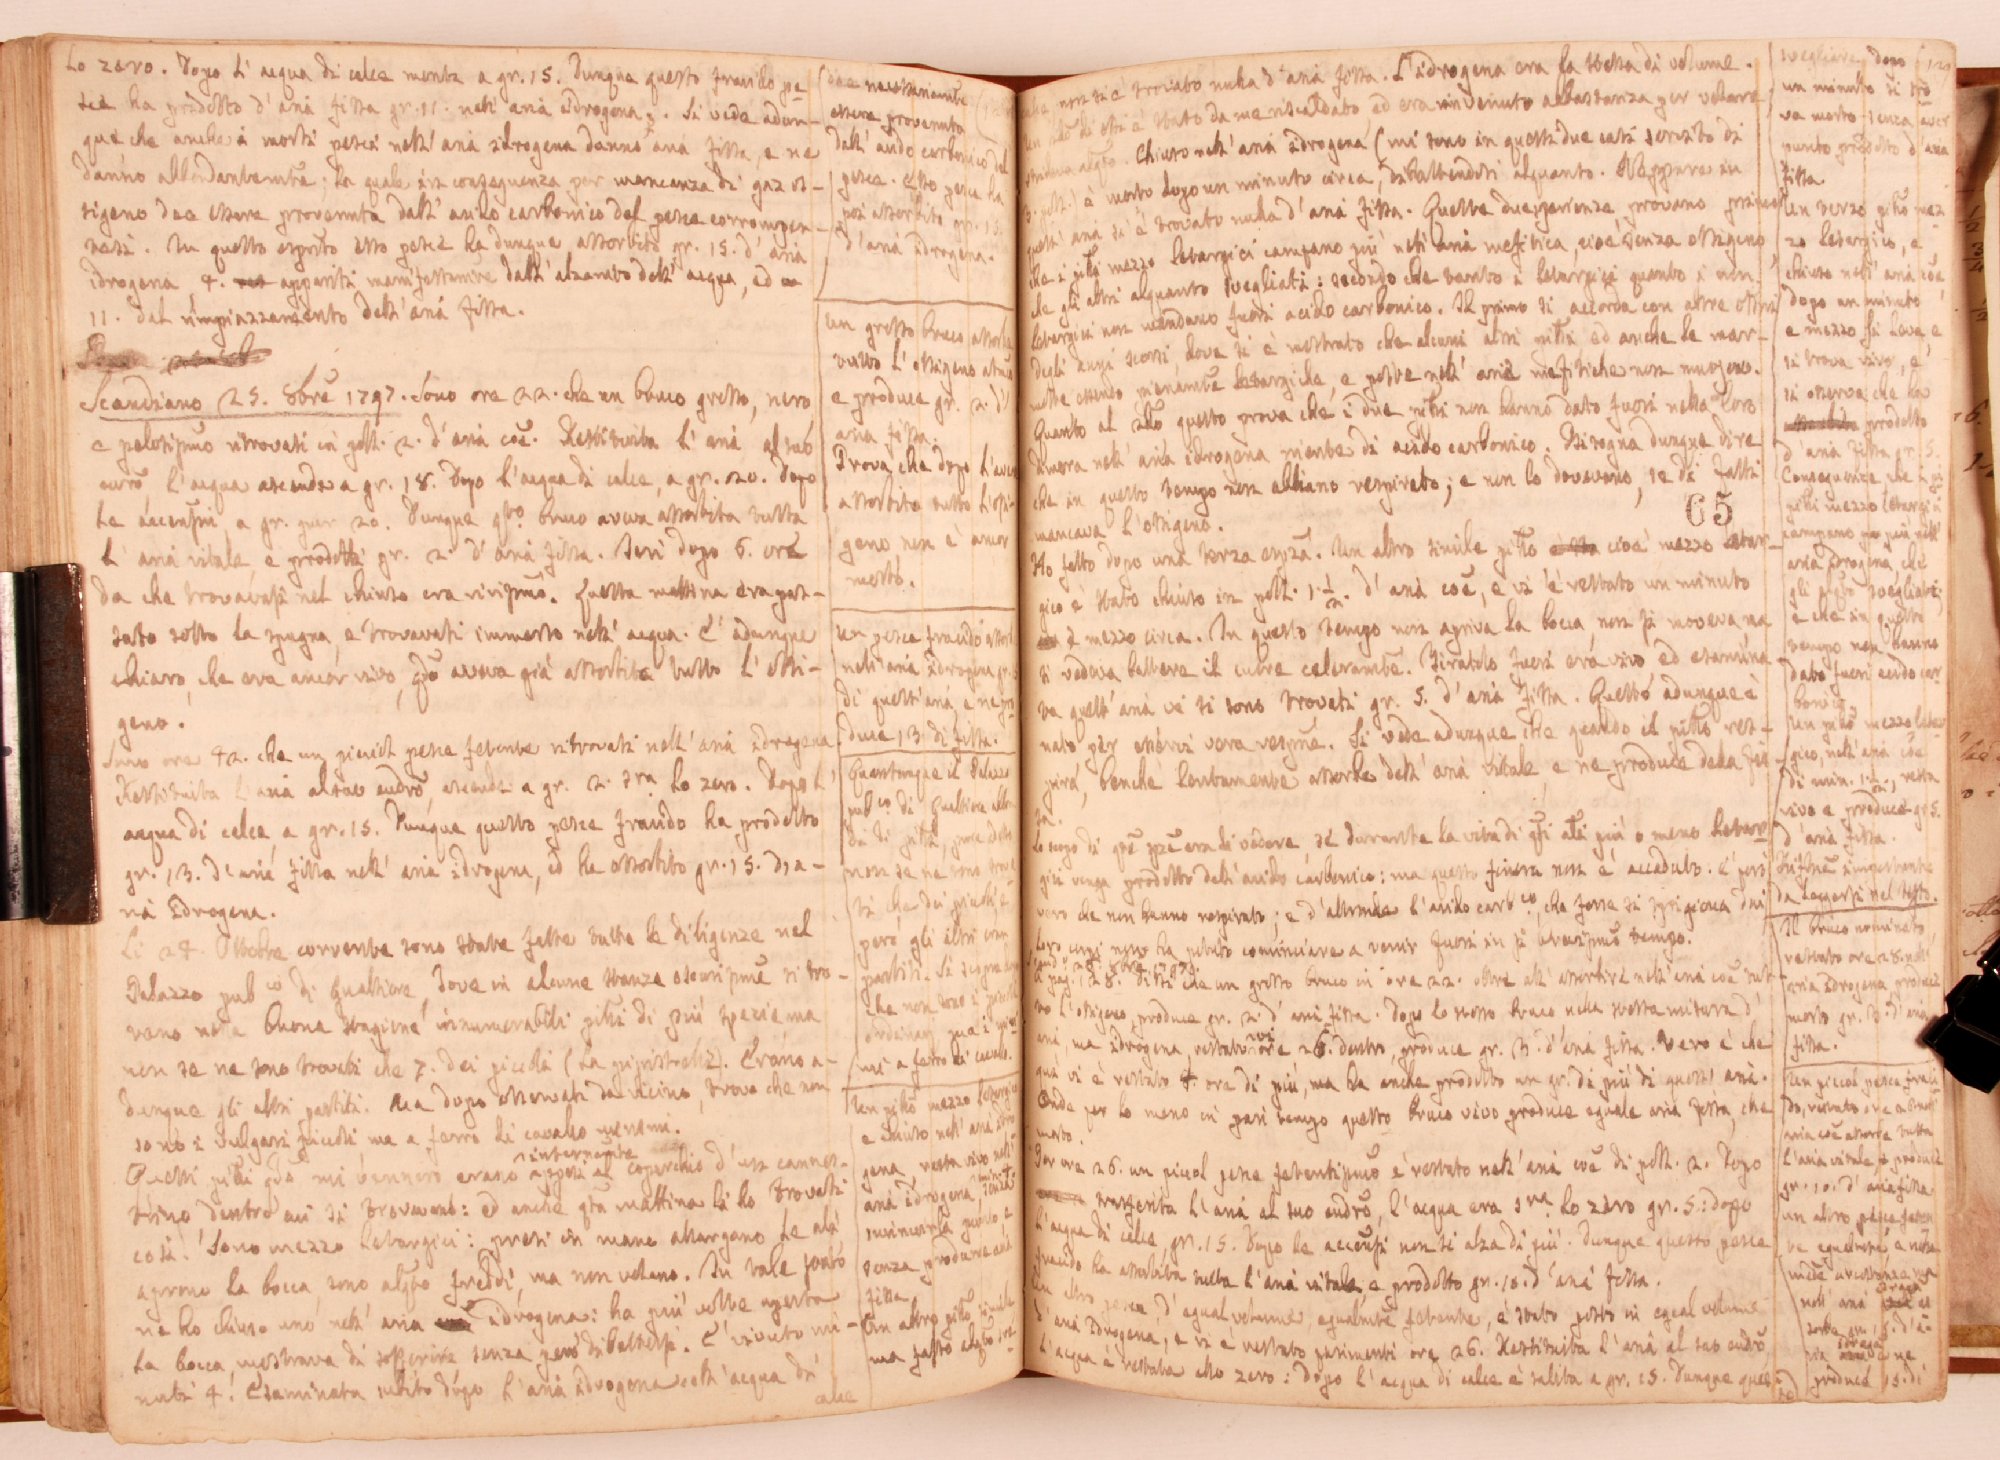 lo zero. Dopo l' acqua di calce monta a gr. 15. Dunque questo fracido pe-
sce ha prodotto d' aria fissa gr. 11. nell' aria idrogena. Si vede adun-
que che anche i morti pesci nell' aria idrogena danno aria fissa, e ne
danno la quale in conseguenza per mancanza di gaz os-
sigeno dee essere provenuta dall' acido carbonico del pesce corrompen-
tesi. In questo esso pesce ha dunque assorbito gr. 15. d' aria
idrogena, 4. apparsi dall' alzamento dell' acqua, ed
11. dal rimpiazzamento dell' aria fissa.
Scandiano 25. 8bre 1797. Sono ore 22. che un bruco grosso, nero
e pelosissimo ritrovasi in poll. 2. d' aria coe. Restituita l' aria al suo
l' acqua ascende a gr. 18. Dopo l' acqua di calce, a gr. 20. Dopo
le accensioni a gr. pur 20. Dunque qto bruco aveva assorbita tutta
l' aria vitale, e prodotti gr. 2. d' aria fissa. Ieri dopo 6. ore
da che trovavasi nel chiuso era vivissimo. Questa mattina era pas-
sato sotto la spugna, e trovavasi immerso nell' acqua. E' adunque
chiaro, che era ancor vivo, qdo aveva già assorbito tutto l' ossi-
geno.
Sono ore 42. che un piccol pesce fetente ritrovasi nell' aria idrogena.
Restituita l' aria al suo ascende a gr. 2. sra lo zero. Dopo l'
acqua di calce, a gr. 15. Dunque questo pesce fracido ha prodotto
gr. 13. d' aria fissa nell' aria idrogena, ed ha assorbito gr. 15. d' a-
ria idrogena.
Li 24. Ottobre corrente sono state fatte tutte le diligenze nel
Palazzo pubco di Gualtiere dove in alcune stanze oscurissime si tro-
vano nella buona stagione innumerabili plli di più spezie, ma
non se ne sono trovati che 7. dei piccoli (la pipistrella). Erano a-
dunque gli altri partiti. Ma dopo osservati da vicino, trovo che non
sono i vulgari piccoli, ma a ferro di cavallo minimi.
internamente
Questi plli qdo mi vennero erano apposti al coperchio d' un cannes-
trino dentro cui si trovavano: ed anche qta mattina li ho trovati
così. Sono mezzo letargici: presi in mano allargano le ali,
aprono la bocca, sono alqto freddi, ma non volano. In tale stato
ne ho chiuso uno nell' aria idrogena: ha più volte aperta
la bocca, mostrava di sofferire senza però dibattersi. E' vivuto mi-
nuti 4. Esaminata subito dopo l' aria idrogena coll' acqua di
calce
dee necessariamente
essere provenuta
dall' acido carbonico del
pesce. Esso pesce ha
poi assorbito gr. 15.
d' aria idrogena.
Un grosso bruco assorbe
tutto l' ossigeno
e produce gr. 2. d'
aria fissa.
Prova che dopo l' aver
assorbito tutto l' ossi-
geno non è ancor
morto.
Un pesce fracido assorbe
nell' aria idrogena gr.
di quest' aria, e ne pro-
duce 13. di fissa.
Quantunque il Palazzo
pubco di Gualtiere abbon-
di di plli, pure
non se ne sono trova-
ti che dei piccoli, e
però gli altri eran
partiti. Si scopre dopo
che non sono i piccoli
ordinarj, ma i mini-
mi a ferro di cavallo.
Un pllo mezzo letargico
e chiuso nell' aria idro-
gena resta vivo nell'
aria idrogena minuti
senza
senza produrre aria
fissa
Un altro pllo simile
ma fatto alqto sve-
che non si è trovato nulla d' aria fissa. L' idrogena era la stessa di volume.
Un altro di essi è stato da me riscaldato, ed era rinvenuto abbastanza per volare,
alqto. Chiuso nell' aria idrogena (mi sono in questi due casi servito di
3. poll.) è morto dopo un minuto circa, dibattendosi alquanto. Neppure in
quest' aria si è trovato nulla d' aria fissa. Queste due sperienze provano primo
che i plli mezzo letargici campano più nell' aria mefitica, cioè senza ossigeno
che gli altri alquanto svegliati: secondo che tanto i letargici quanto i non
letargici non mandano fuori acido carbonico. Il primo si accorda con altre
degli anni scorsi, dove si è mostrato che alcuni altri plli ed anche le mar-
motte essendo letargiche, e poste nell' arie mefitiche non muojono.
Quanto al 2do questo prova che i due plli non hanno dato fuori nella loro
dimora nell' aria idrogena niente di acido carbonico. Bisogna dunque dire
che in questo tempo non abbiano respirato; e non lo dovevano, se di fatti
mancava l' ossigeno.
65
Ho fatto dopo una terza espza. Un altro simile pllo cioè mezzo letar-
gico è stato chiuso in poll. 1. 1/2. d' aria coe, e vi è restato un minuto
e mezzo circa. In questo tempo non apriva la bocca, non si moveva, ma
si vedeva battere il cuore celeramente. Tiratolo fuori era vivo ed esamina-
ta quell' aria vi si sono trovati gr. 5. d' aria fissa. Questo adunque è
nato per esservi vera respne. Si vede adunque che quando il pllo res-
pira, benchè lentamente assorbe dell' aria vitale, e ne produce della fis-
sa.
Lo scopo di era di vedere, se durante la vita di qsti più o meno letar-
gici venga prodotto dell' acido carbonico: ma questo finora non è accaduto. E' però
vero che non hanno respirato; e d' altronde l' acido carbco, che forse si sprigiona dai
loro corpi non ha potuto cominciare a venir fuori in sì brevissimo tempo.
A pag. 128. dissi che un grosso bruco in ore 22. oltre all' assorbire nell' aria coe tut-
to l' ossigeno, produce gr. 2. d' aria fissa. Dopo lo stesso bruco nella stessa misura d'
aria, ma idrogena, restatovi ore 26. dentro, produce gr. 3. d' aria fissa. Vero è che
quà vi è restato 4. ore di più, ma ha anche prodotto un gr. di più di quest' aria.
Onde per lo meno in pari tempo questo bruco vivo produce eguale aria fissa, che
morto.
Per ore 26. un piccol pesce fetentissimo è restato nell' aria coe di poll. 2. Dopo
trasferita l' aria al suo l' acqua era sra lo zero gr. 5: dopo
l' acqua di calce, gr. 15. Dopo le accensioni non si alza di più. Dunque questo pesce
fracido ha assorbita tutta l' aria vitale, e prodotto gr. 10. d' aria fissa.
Un altro pesce, d' egual volume, egualmte fetente, è stato posto in egual volume
d' aria idrogena, e vi è restato parimenti ore 26. Restituita l' aria al suo
l' acqua è restata allo zero: dopo l' acqua di calce è salita a gr. 15. Dunque ques-
svegliare, dopo
un minuto si tro-
va morto senza aver
punto prodotto d' aria
fissa
Un terzo pllo mez-
zo letargico, e
chiuso nell' aria coe
dopo un minuto
e mezzo si leva, e
si trova vivo, e
si osserva che ha
prodotto
d' aria fissa gr. 5.
Conseguenze che i
plli mezzo letargici
campano più nell'
aria idrogena, che
gli plli svegliati,
e che in questo
tempo non hanno
dato fuori acido car-
bonico
Un pllo mezzo letar-
gico, nell' aria coe
di min. 1. 1/2, resta
vivo e produce gr. 5.
d' aria fissa.
importante
da leggersi nel testo.
Il bruco nominato,
restato ore 28. nell'
aria idrogena produce
morto gr. 3. d' aria
fissa.
Un piccol pesce fraci-
do, restato ore 26 nell'
aria coe assorbe tutta
l' aria vitale e produce
gr. 10. d' aria fissa
un altro pesce feten-
te egualmte, e nelle
circostanze ma
nell' aria
sorbe gr. 15. d' a-
ria e ne
produce 15. di